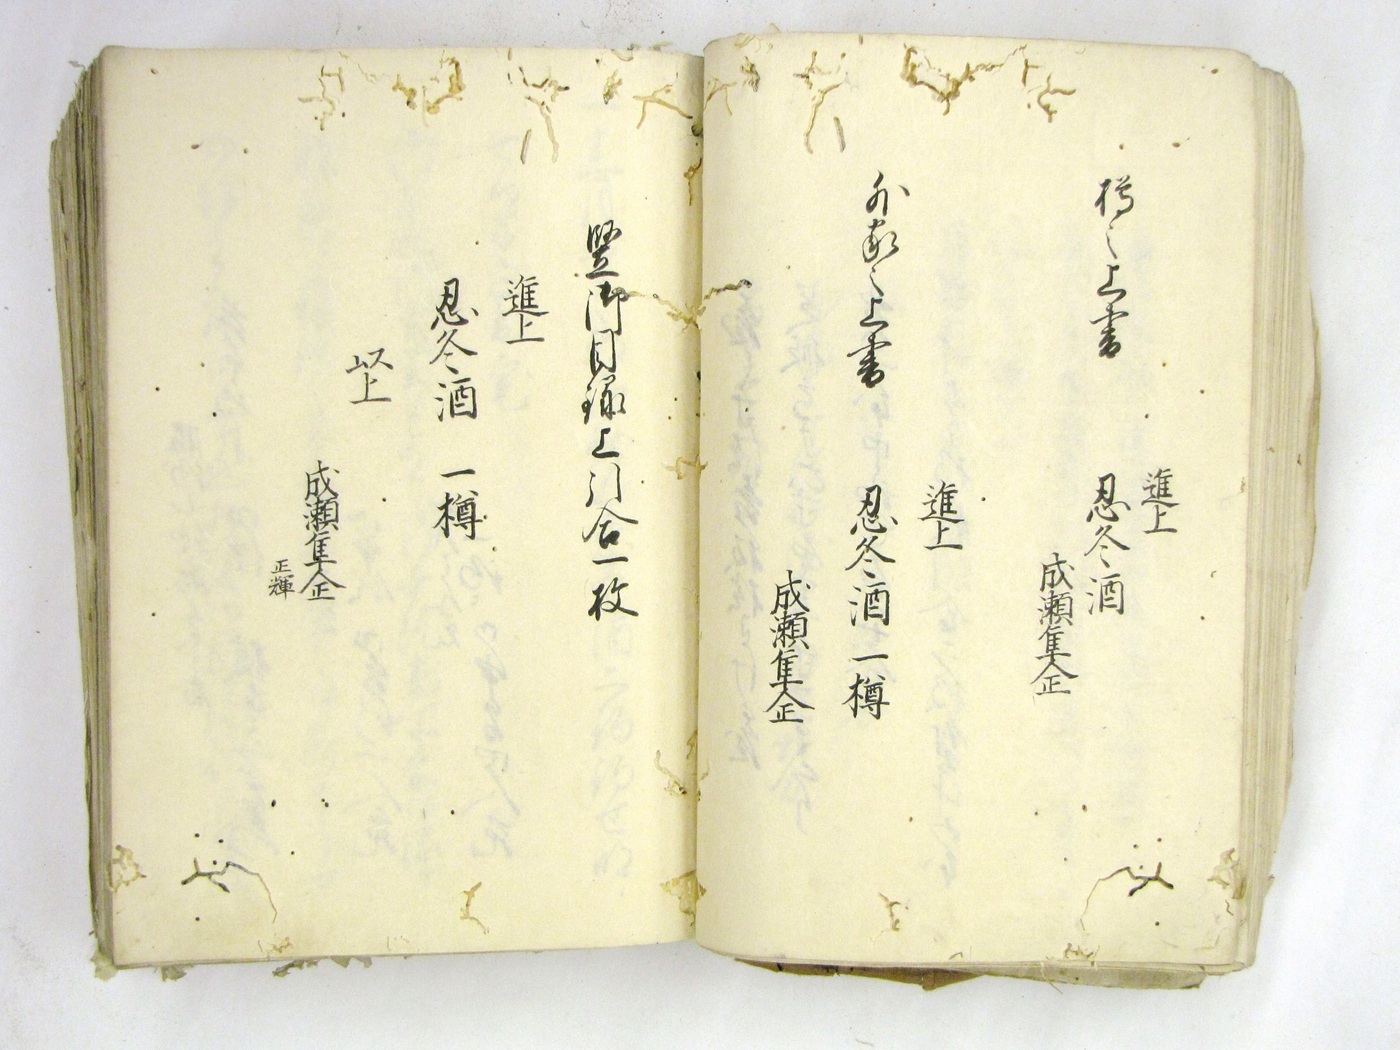 樽之上書
進上
忍冬酒
成瀬隼人正
外家之上書
進上
忍冬酒一樽
成瀬隼人正
竪御目録上引合一枚
進上
忍冬酒 一樽
以上
成瀬隼人正
正輝